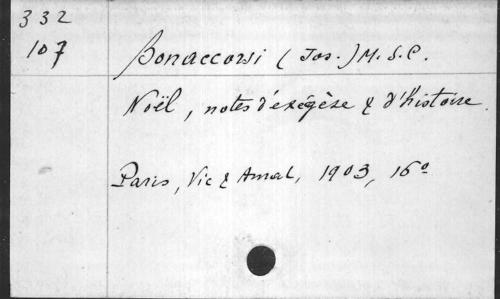 332
107
Bonaccorsi (Jos.) M.S.C.
Noël, notes d'exégèse & d'histoire
Paris, Vic & Amat, 1903, 16º